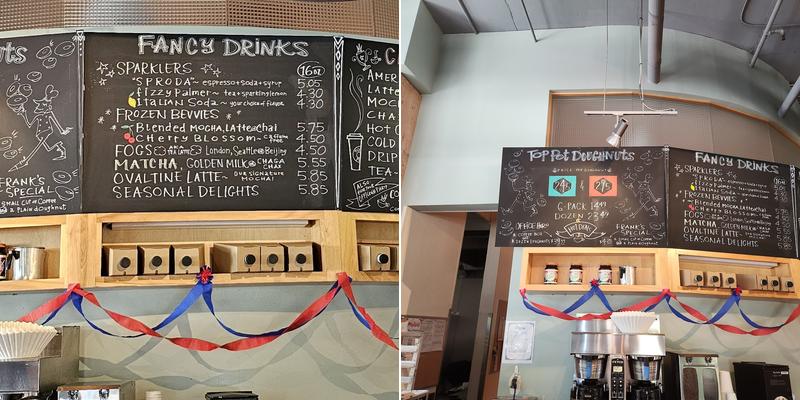 FANCY DRINKS
SPARKLERS 16oz
"SPRODA"~ espresso+soda+syrup 5.05
fizzy Palmer~ tea+sparklinglem 4.30
Italian Soda~ your choice of flavor 4.30
FROZEN BEVVIES
Blended MOCHA, LATTE or Chai 5.75
Cherry Blossom~ 4.50
FOGS London, Seattle or Beijing 4.50
MATCHA, GOLDEN MILK or CHAGA CHAI 5.55
OVALTINE LATTE~ Our signature MOCHA! 5.85
SEASONAL DELIGHTS 5.85
FRANK'S
SPECIAL
SMALL CUP OF COFFEE
& a PLAIN doUGHNUT
AMER
LATT
MOC
CHA
HOT C
COLD
DRIP
TEA
Top Pot Doughnuts
6-PACK 14.99
DOZEN 23.49
OFFICE BOX
FRANK'S
SPECIAL
FANCY DRINKS
SPARKLERS
fizzy Palmer~
Italian Soda~
FROZEN BEVVIES
Blended MOCHA, LATTE or Chai
Cherry Blossom~
FOGS London, Seattle or Beijing
MATCHA, GOLDEN MILK or CHAGA
OVALTINE LATTE~
SEASONAL DELIGHTS